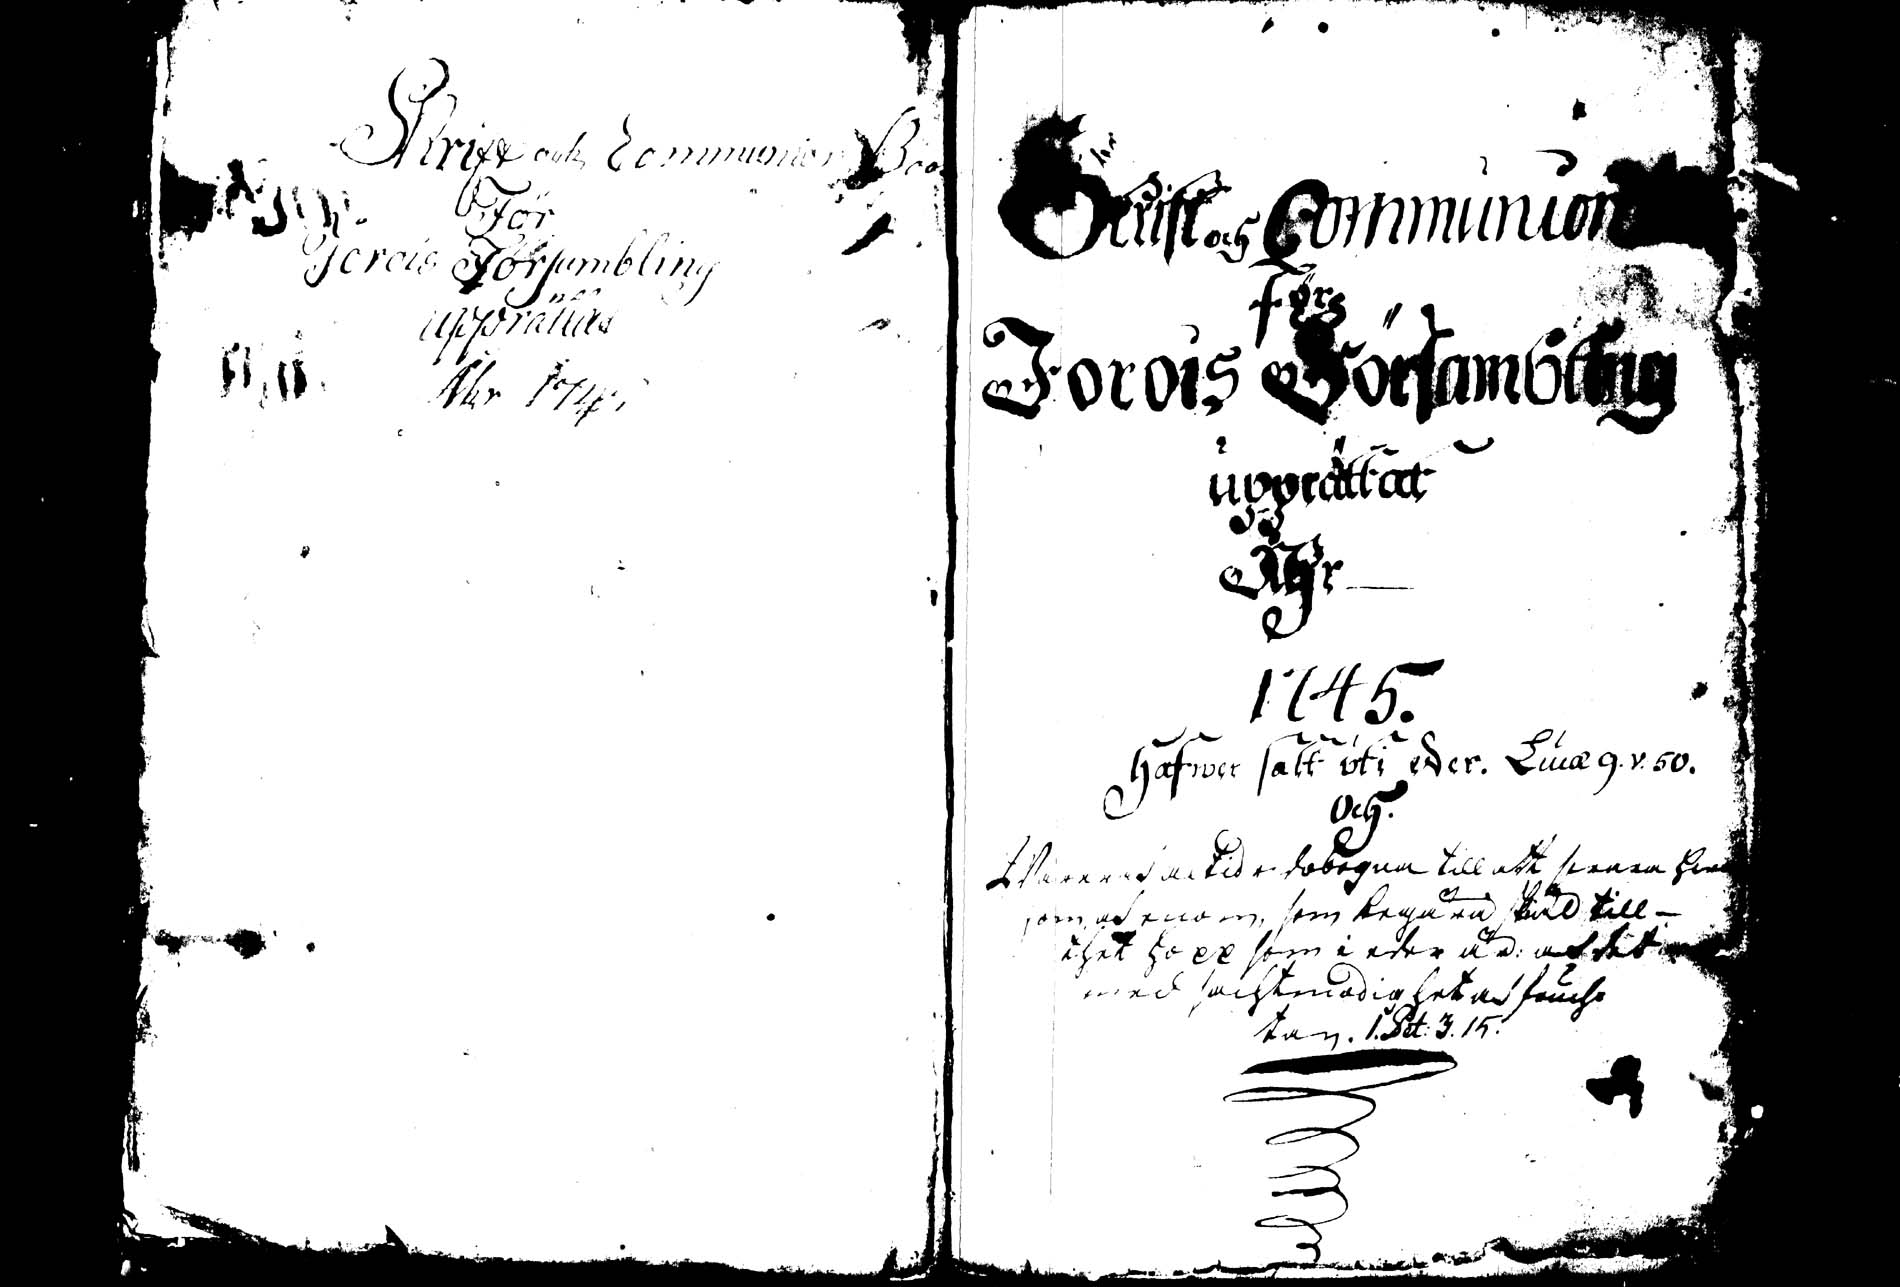 Skrift och Communion Boo
För
Jorois Försambling
upprättad
Åhr 1745
Skrift och Communion
för
Jorois Försambling
upprättat
Åhr
1745.
Hafwer salt uti eder. Lucæ 9. v. 50.
Och.
altid redobogna till att swara
som begära skiäl till
thet hopp som i eder är: och det
med sachtmodighet och fruch-
tan. 1. Pet: 3. 15.